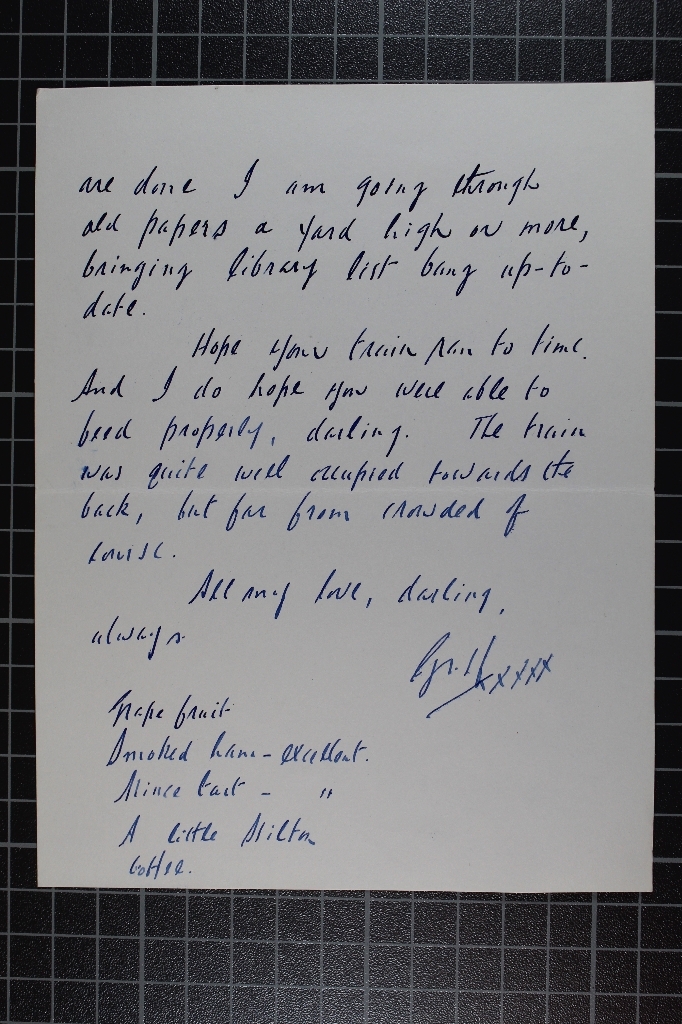 are done I am going through
old papers a yard high or more,
bringing library list bang up-to-
date.
Hope your train ran to time.
And I do hope you were able to
feed properly, darling. The train
was quite well occupied towards the
back, but far from crowded of
course.
All my love, darling,
always
xxxxx
Grape fruit
Smoked ham - excellent.
Mince tart - "
A little Stilton
Coffee.